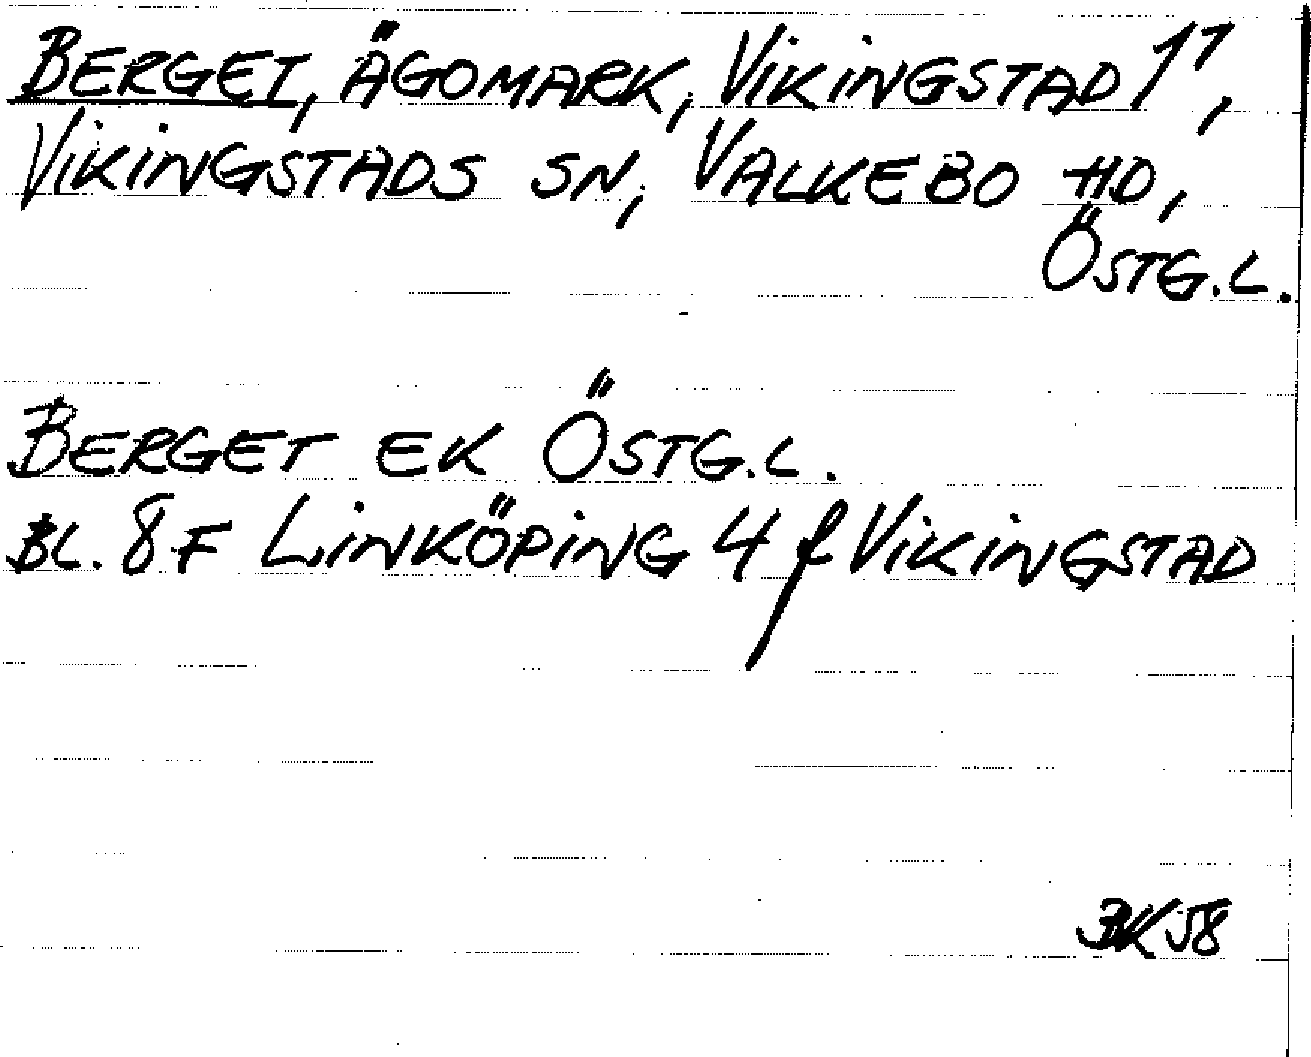 BERGET, ÄGOMARK, VIKINGSTAD 1¹,
VIKINGSTADS SN, VALKEBO HD,
ÖSTG.L.
BERGET EK ÖSTG.L.
BL. 8F LINKÖPING 4 f VIKINGSTAD
BK58